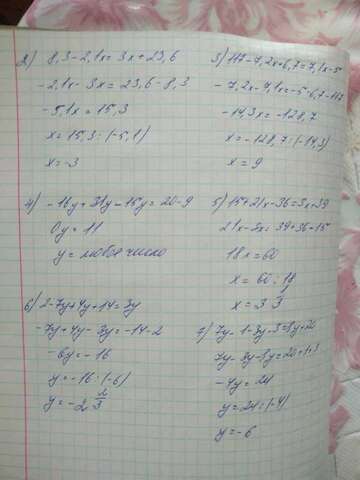 2) 8,3-2,1x=3x+23,6
-2,1x-3x=23,6-8,3
-5,1x=15,3
x=15,3:(-5,1)
x=-3
3) 117-7,2x+6,7=7,1x-5
-7,2x-7,1x=-5-6,7-117
-14,3x=-128,7
x=-128,7:(-14,3)
x=9
4) -16y+31y-15y=20-9
0y=11
y=любое число
5) 15+21x-36=3x+39
21x-3x=39+36-15
18x=60
x=60:18
x=3 1/3
6) 2-7y+4y+14=3y
-7y+4y-3y=-14-2
-6y=-16
y=-16:(-6)
y=-2 2/3
7) 7y-1-3y+3=8y+20
7y-3y-8y=20+1+3
-4y=24
y=24:(-4)
y=-6